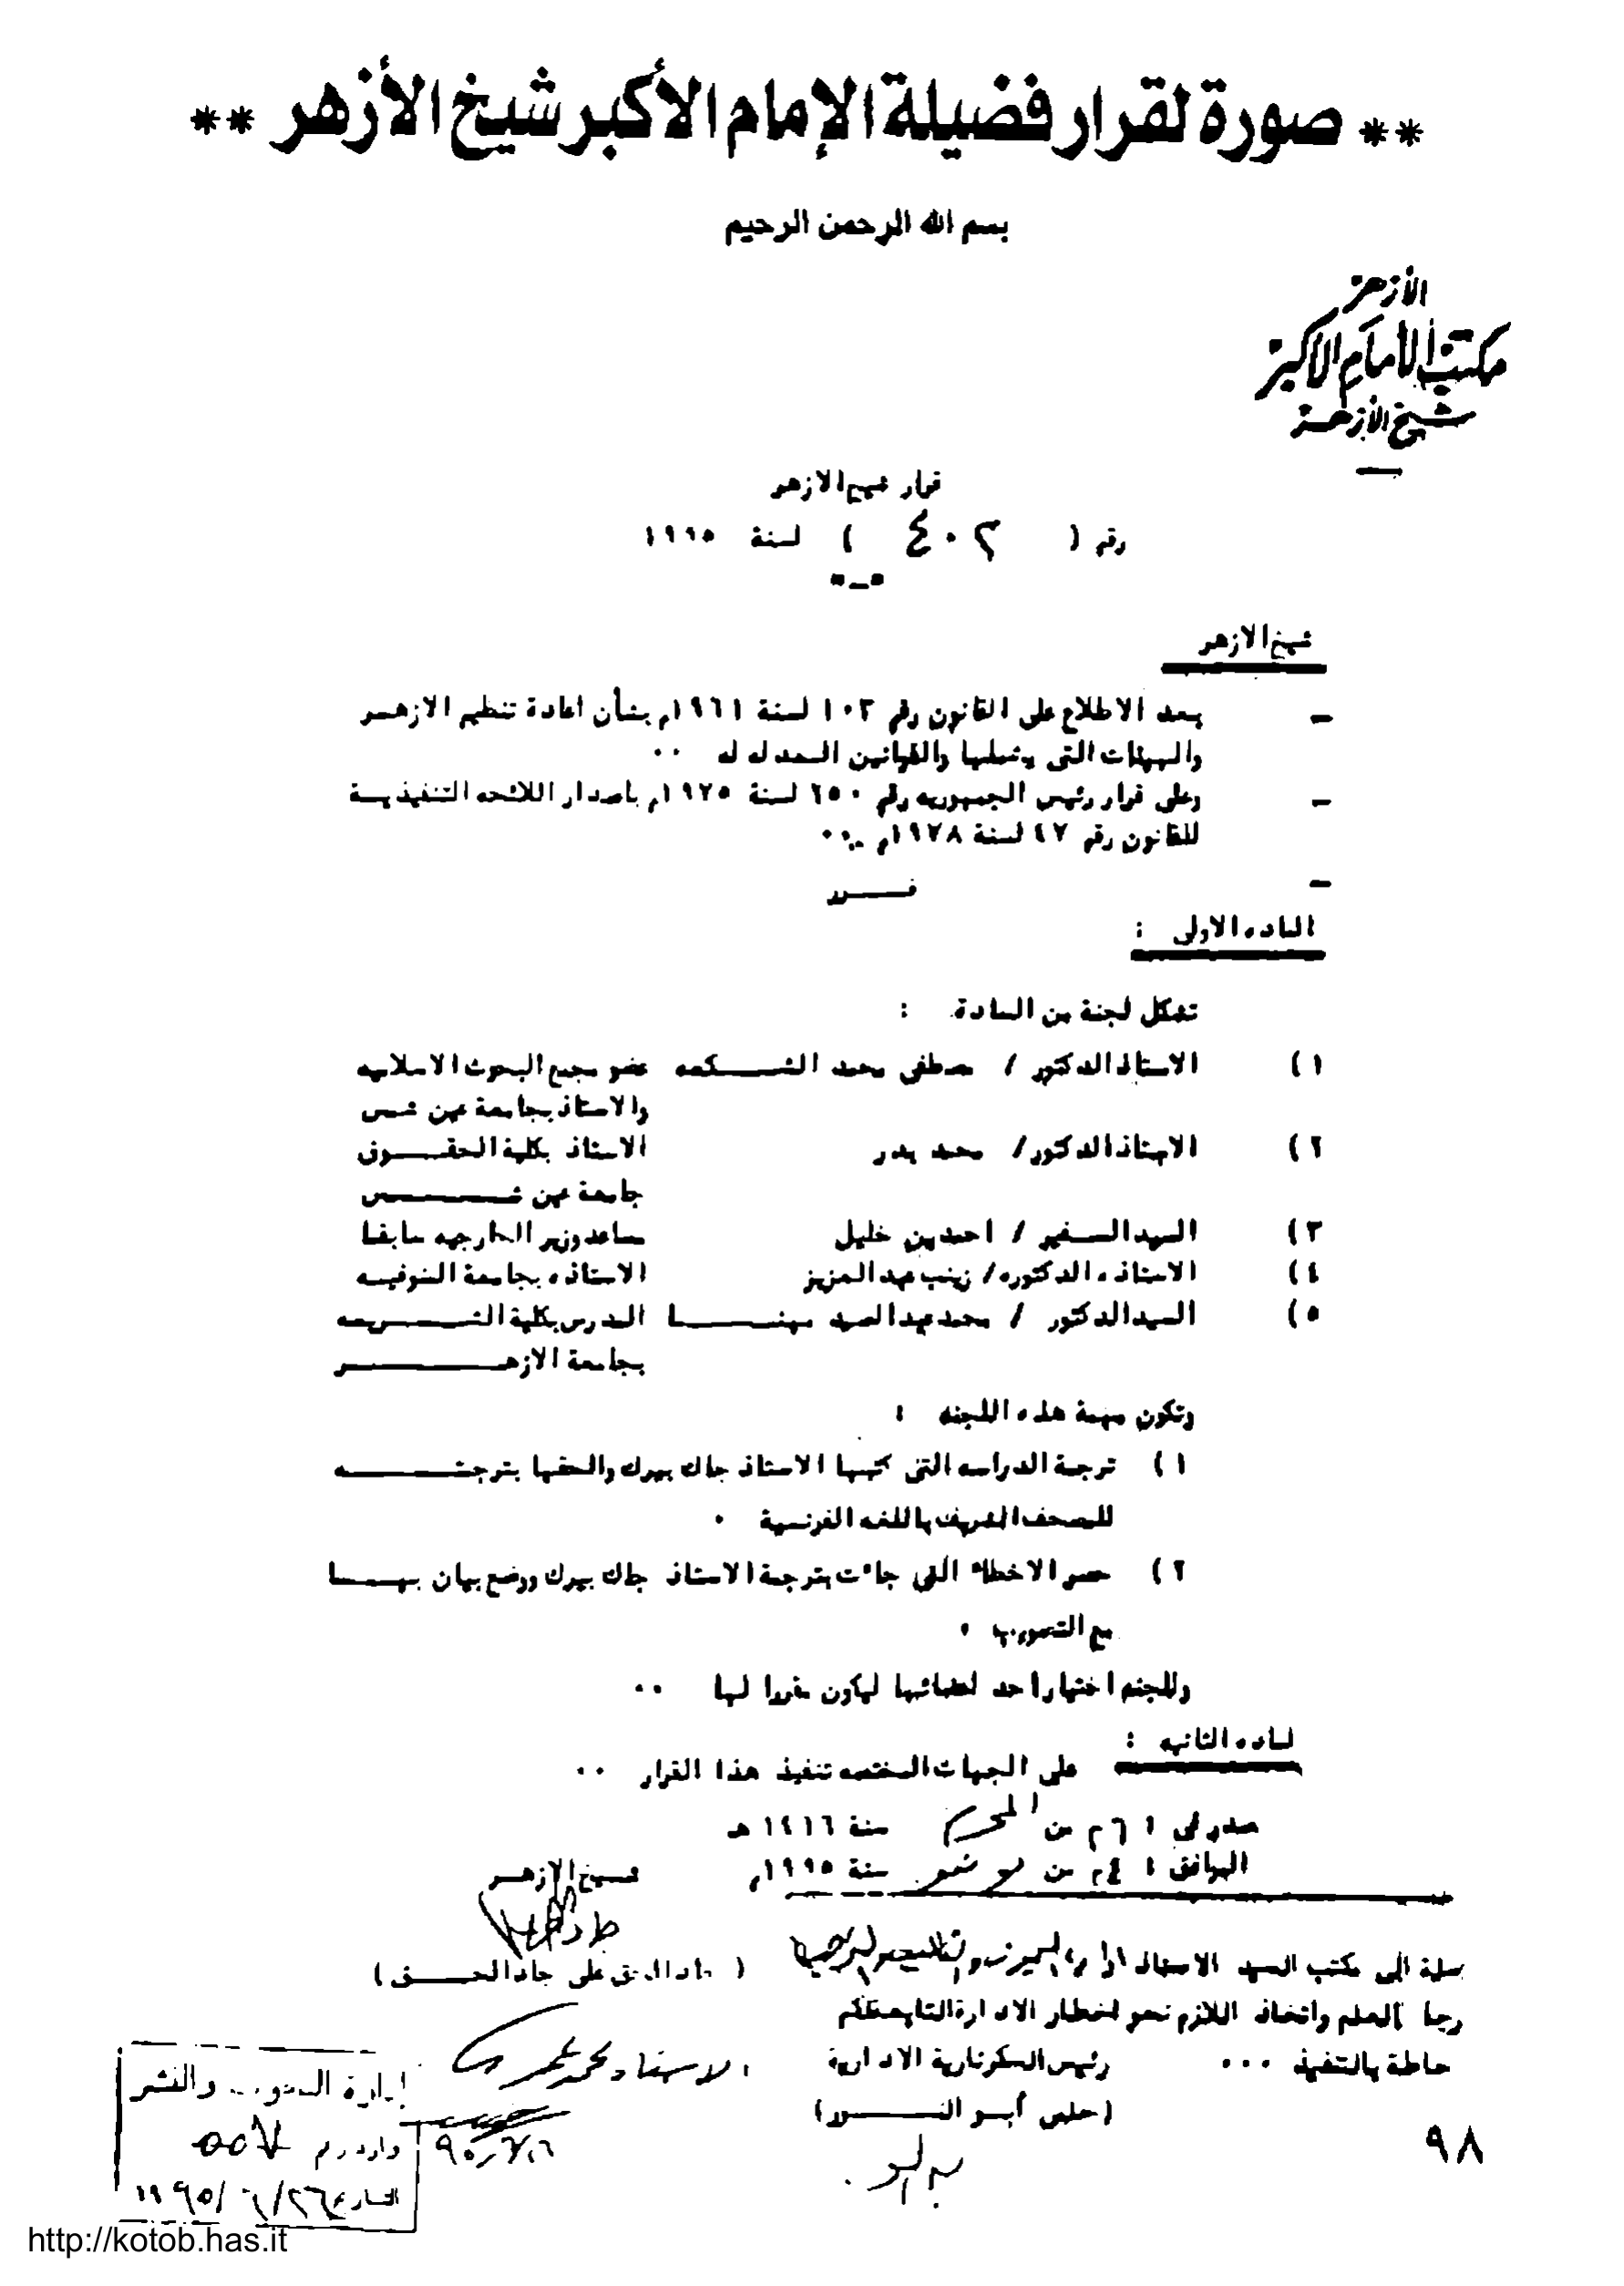 ** صورة لقرار فضيلة الإمام الأكبر شيخ الأزهر **
بسم الله الرحمن الرحيم
الأزهر
مكتب الامام الاكبر
شيخ الأزهر
قرار شيخ الازهر
رقم ( ٤٠٢ ) لسنة ١٩٩٥
شيخ الازهر
- بعد الاطلاع على القانون رقم ١٠٣ لسنة ١٩٦١م بشأن اعادة تنظيم الازهر
والهيئات التى يشملها والقوانين المعدله له ٠٠
- وعلى قرار رئيس الجمهوريه رقم ٢٥٠ لسنة ١٩٧٥م باصدار اللائحه التنفيذيـة
للقانون رقم ٤٧ لسنة ١٩٧٨م ٠٠
- قـــرر
الماده الاولى :
تشكل لجنة من السادة :
١) الاستاذ الدكتور / مصطفى محمد الشـــكعه عضو مجمع البحوث الاسلاميه
والاستاذ بجامعة عين شمس
٢) الاستاذ الدكتور/ محمد بدر الاستاذ بكلية الحقـــوق
جامعة عين شــــمس
٣) السيد السفير / احمد بن خليل مساعد وزير الخارجيه سابقا
٤) الاستاذه الدكتوره/ زينب عبد العزيز الاستاذه بجامعة المنوفيـه
٥) السيد الدكتور / محمد عبد الصمد مهنـــا المدرس بكلية الشـــريعه
بجامعة الازهـــــر
وتكون مهمة هذه اللجنه :
١) ترجمة الدراسه التى كتبها الاستاذ جاك بيرك والحقها بترجمتــــه
للمصحف الشريف باللغه الفرنسية ٠
٢) حصر الاخطاء التى جاءت بترجمة الاستاذ جاك بيرك ووضع بيان بهـــا
مع التصويب ٠
وللجنه اختيار احد اعضائها ليكون مقررا لها ٠٠
لماده الثانيه :
على الجهات المختصه تنفيذ هذا القرار ٠٠
صدر فى : ٢٦ من المحرم سنة ١٤١٦ هـ
الموافق : ٢٤ من يونيو سنة ١٩٩٥م
شيخ الازهـر
( جاد الحق على جاد الحـــق )
سلة الى مكتب السيد الاستاذ
رجا العلم واتخاذ اللازم نحو اخطار الادارة التابعة لكم
حاطة بالتنفيذ ٠٠٠ رئيس السكرتارية الادارية
(حلمى أبـو النـــور)
الاستاذ محمد عمر
إدارة البحوث والنشر
وارد رقم ٥٥٧
التاريخ ٢٦/٦/١٩٩٥
٩٨
http://kotob.has.it